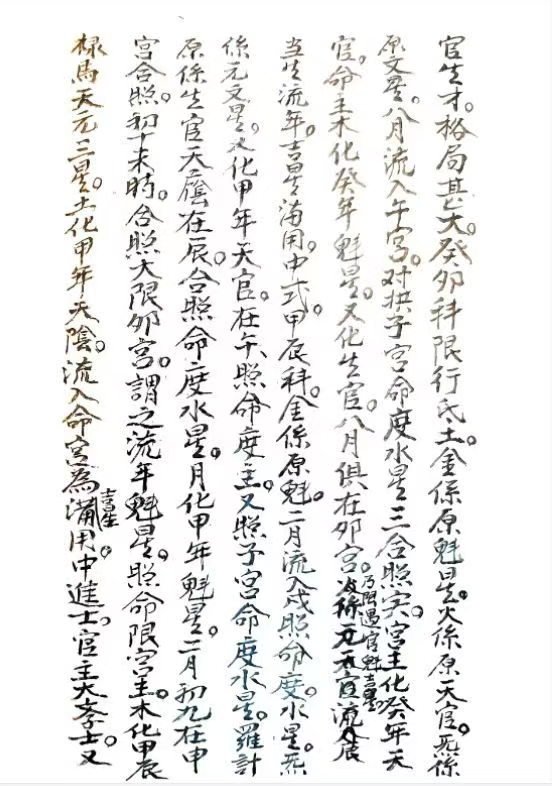 官生才。格局甚大。癸卯科限行氐土。金係原魁星。火係原天官。炁係
原文星。八月流入午宮。对拱子宮命度水星三合照。寅宮主化癸年天
官。命主木化癸年魁星。又化生官。八月俱在卯宮。乃限遇官魁吉星。流辰
当生流年吉星滿用。中式甲辰科。金係原魁。二月流入戌照命度。水星。炁
係元文星。又化甲年天官。在午、照命度主。又照子宮命度水星。羅計
原係生官天廕在辰。合照命度水星。月化甲年魁星。二月初九在申
宮合照。初十未時。合照大限卯宮。謂之流年魁星。照命限宮主。木化甲辰
祿馬天元三星。土化甲年天陰。流入命宮為吉星滿用。中進士。官主大李士。又